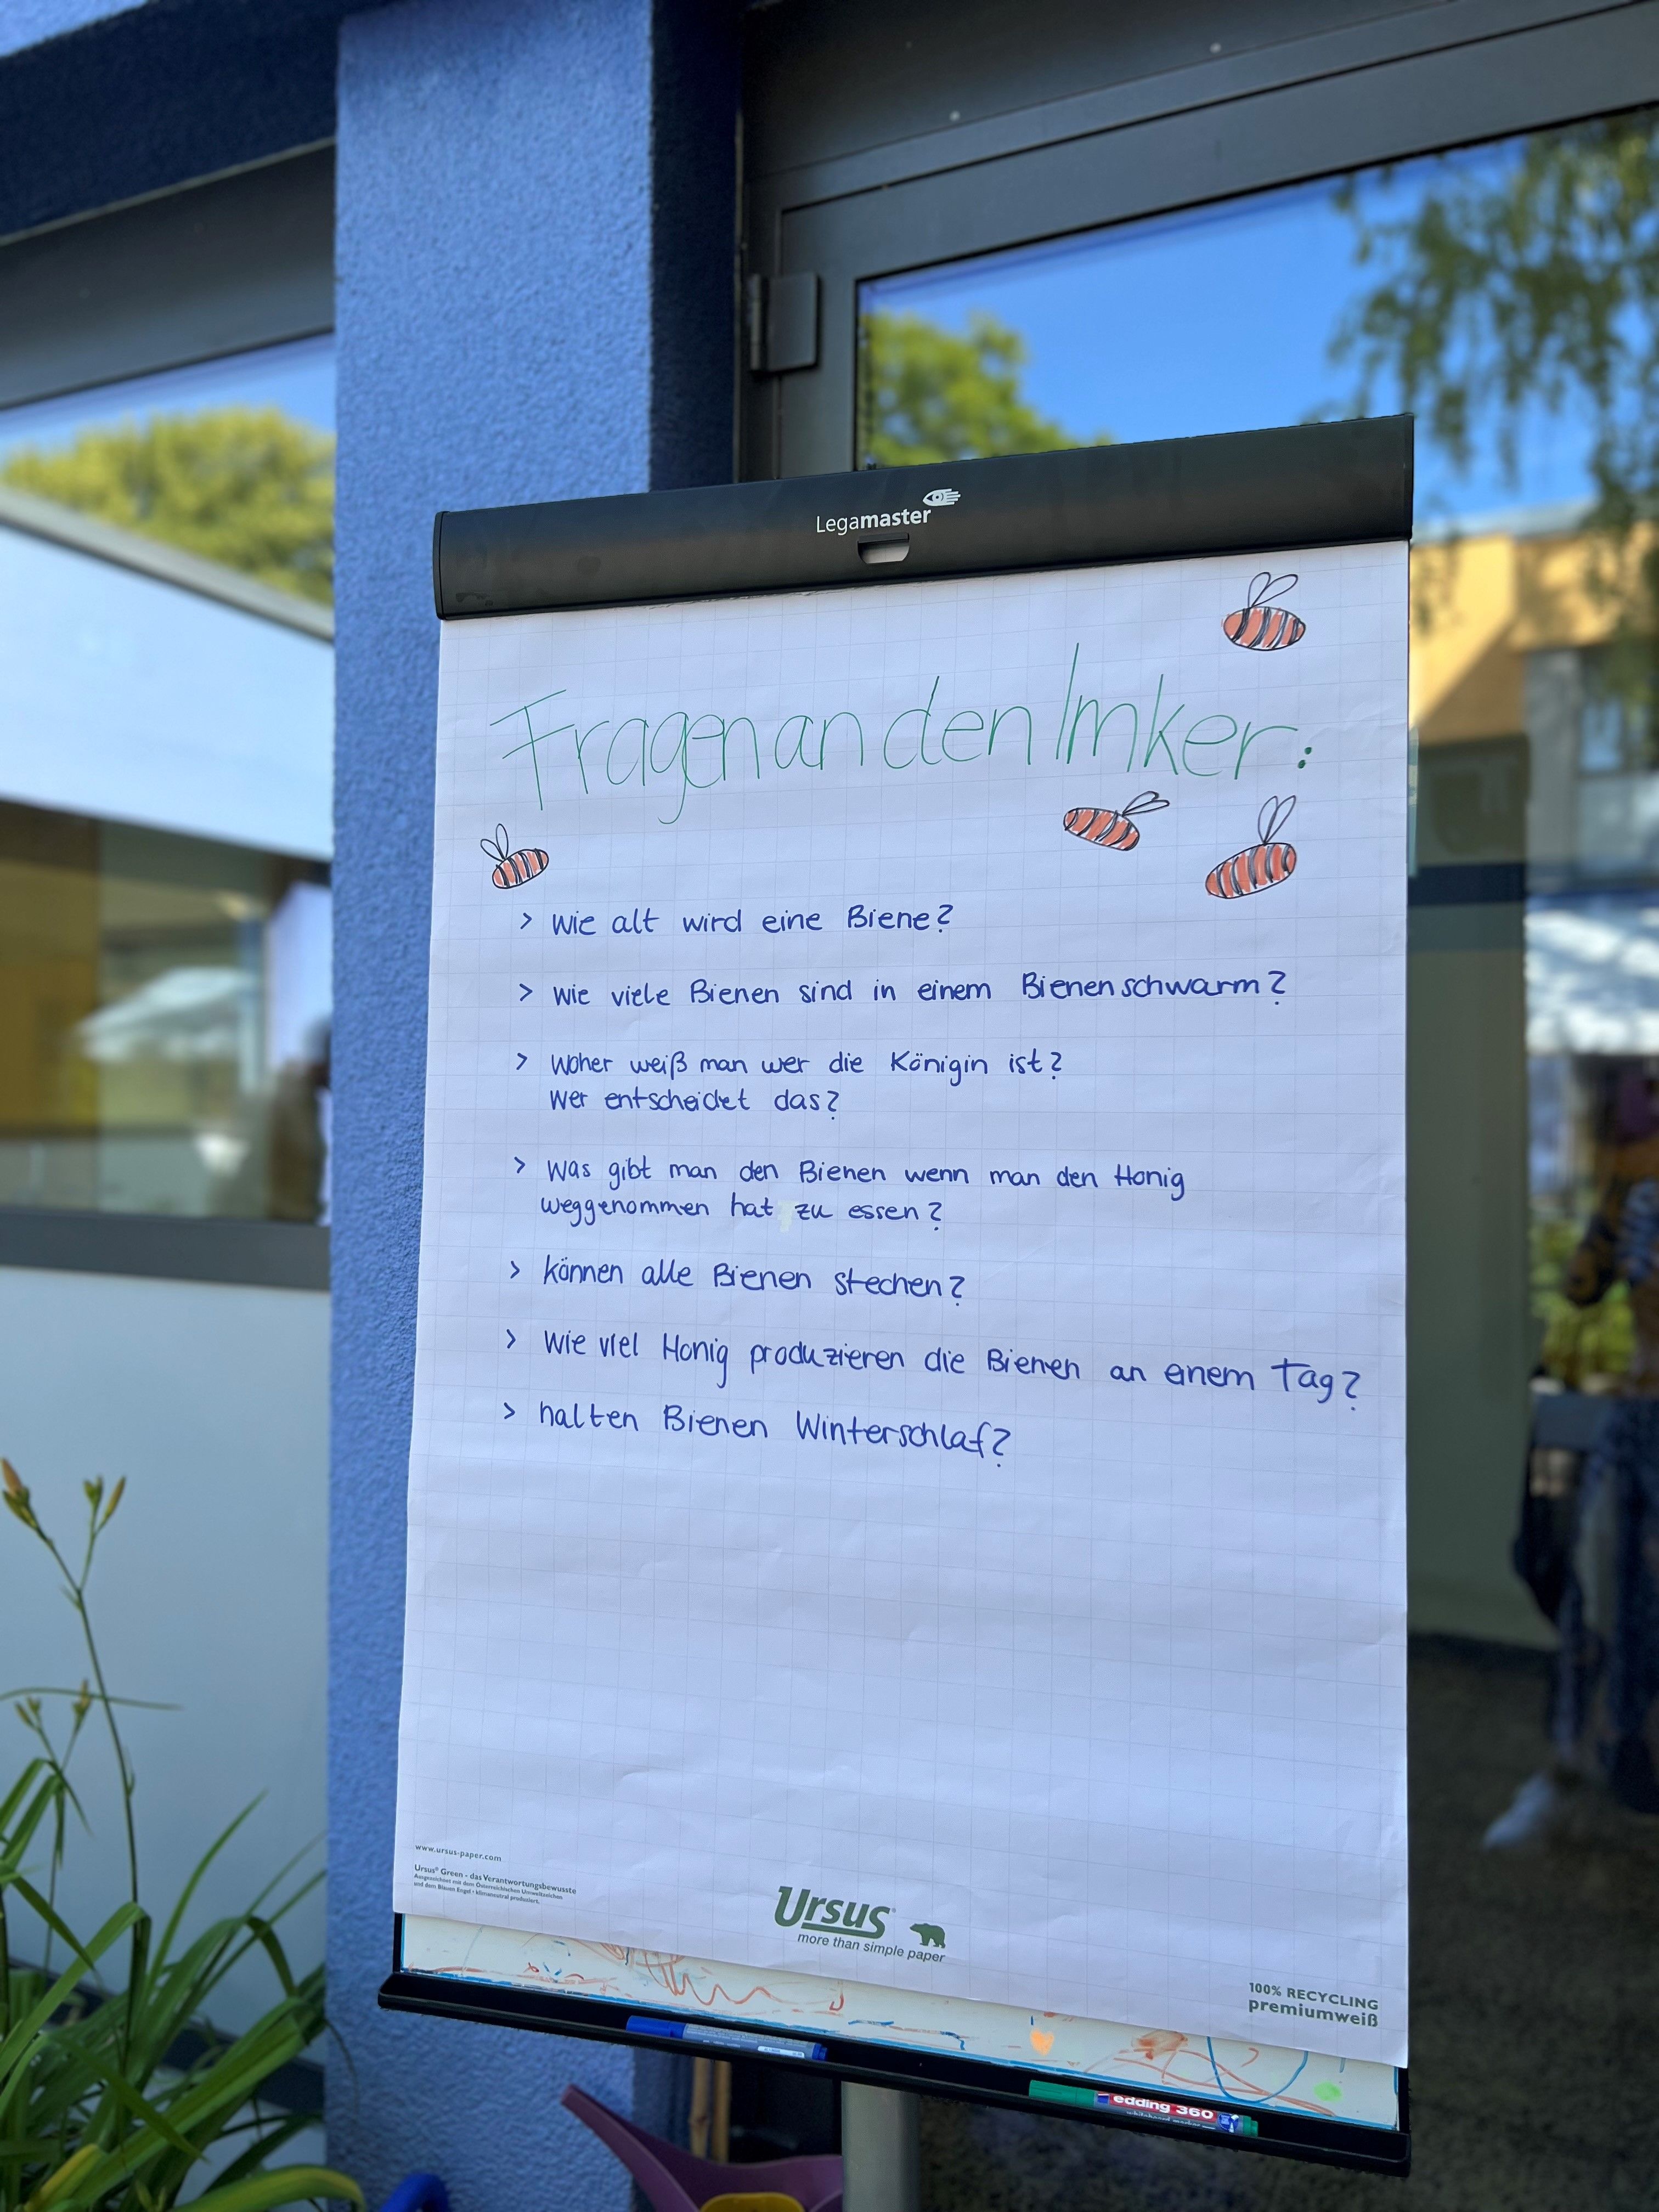 Legamaster
Fragen an den Imker:
> Wie alt wird eine Biene?
> Wie viele Bienen sind in einem Bienenschwarm?
> Woher weiß man wer die Königin ist?
Wer entscheidet das?
> Was gibt man den Bienen wenn man den Honig
weggenommen hat zu essen?
> können alle Bienen stechen?
> Wie viel Honig produzieren die Bienen an einem Tag?
> halten Bienen Winterschlaf?
www.ursus-paper.com
Ursus® Green - das Verantwortungsbewusste
Ausgezeichnet mit dem Österreichischen Umweltzeichen
und dem Blauen Engel • klimaneutral produziert.
Ursus®
more than simple paper
100% RECYCLING
premiumweiß
edding 360